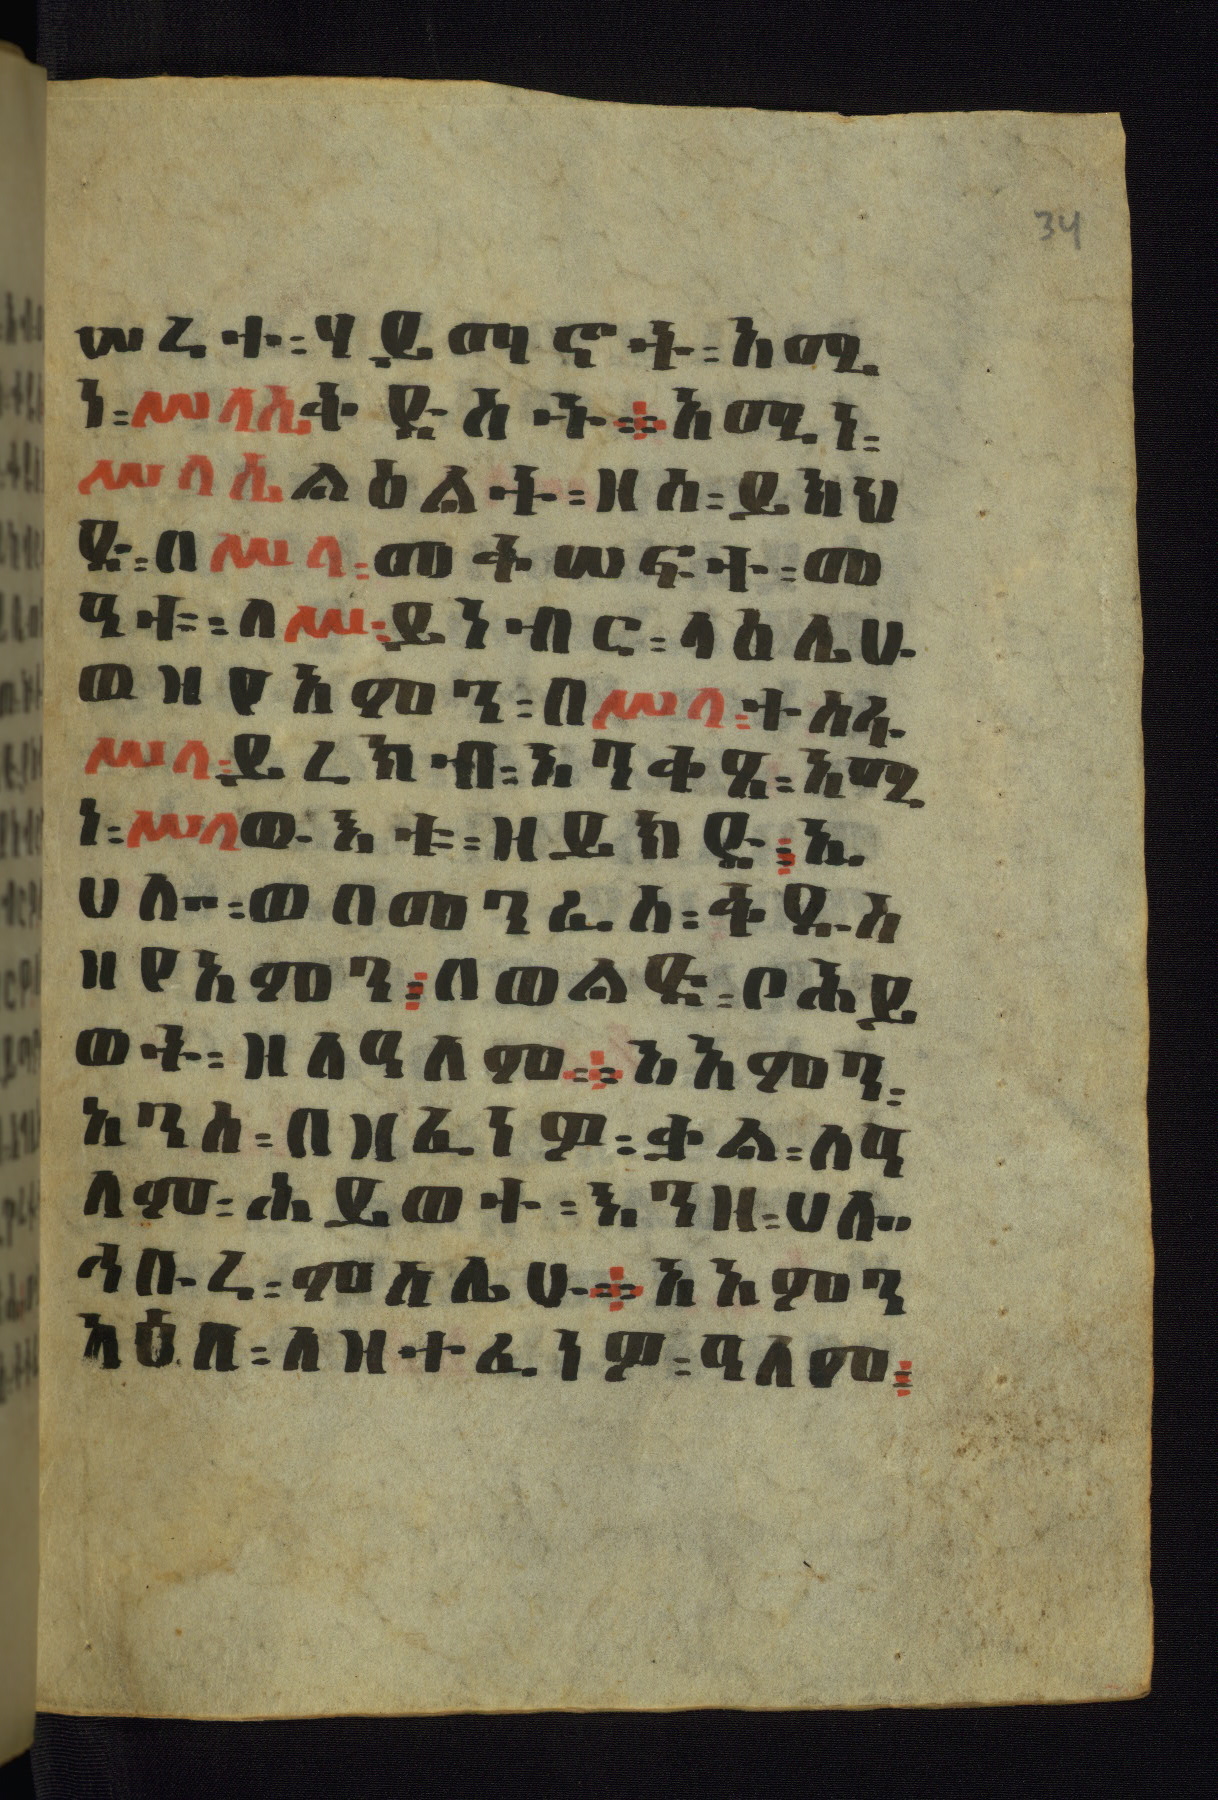 34
ሠረተ፡ሃይማኖት፡አሚ
ነ፡ሥላሴቅዱስት፨አሚነ፡
ሥላሴልዕልት፡ዘስ፡ይክህ
ዱ፡በሥላ፡መቅሠፍት፡መ
ዓት፡፡ለሥ፡ይነብር፡ላዕሌሁ
ወዝየአምን፡በሥላ፡ተስፋ
ሥላ፡ይረክብ፡አንቀጺ፡አሚ
ነ፡ሥላውእቱ፡ዘይክድ፡ኢ
ሀሎ፡ወበመንፈስ፡ቅዱስ
ዘየአምን፡በወልድ፡ቦሕይ
ወት፡ዘለዓለም፨አአምን፡
አንስ፡በዝፈነም፡ቃል፡ለዓ
ለም፡ሕይወት፡እንዘ፡ሀሎ
ኅቡረ፡ምስሌሁ፨አአምን
አበ፡ለዝተፈነም፡ዓለም፡